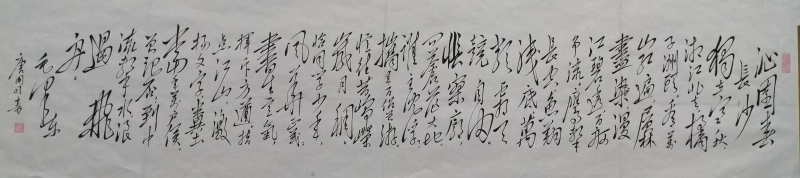 沁園春
長沙
獨立寒秋
湘江北去橘
子洲頭看萬
山紅遍層林
盡染漫
江碧透百舸
爭流鷹擊
長空魚翔
淺底萬
類霜天
競自由
悵寥廓
問蒼茫大地
誰主沉浮
攜來百侶曾游
憶往昔崢嶸
歲月稠
恰同學少年
風華正茂
書生意氣
揮斥方遒指
點江山激
揚文字糞土
當年萬戶侯
曾記否到中
流擊水浪
遏飛
舟
毛澤東